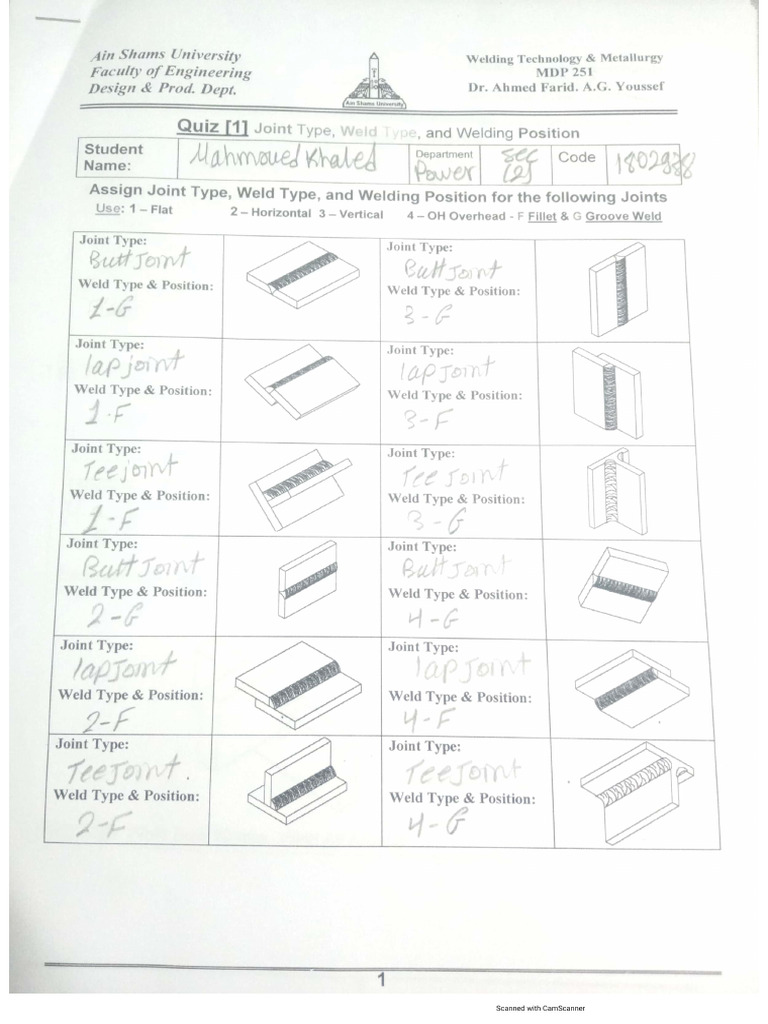 Ain Shams University
Faculty of Engineering
Design & Prod. Dept.
Ain Shams University
Welding Technology & Metallurgy
MDP 251
Dr. Ahmed Farid. A.G. Youssef
Quiz [1] Joint Type, Weld Type, and Welding Position
Student Name: Mahmoued Khaled Department Power sec (2) Code 1802988
Assign Joint Type, Weld Type, and Welding Position for the following Joints
Use: 1 – Flat 2 – Horizontal 3 – Vertical 4 – OH Overhead - F Fillet & G Groove Weld
Joint Type:
Butt Joint
Weld Type & Position:
1-G
Joint Type:
Butt Joint
Weld Type & Position:
3-G
Joint Type:
lap joint
Weld Type & Position:
1-F
Joint Type:
lap Joint
Weld Type & Position:
3-F
Joint Type:
Tee joint
Weld Type & Position:
1-F
Joint Type:
Tee Joint
Weld Type & Position:
3-G
Joint Type:
Butt Joint
Weld Type & Position:
2-G
Joint Type:
Butt Joint
Weld Type & Position:
4-G
Joint Type:
lap Joint
Weld Type & Position:
2-F
Joint Type:
lap Joint
Weld Type & Position:
4-F
Joint Type:
Tee Joint.
Weld Type & Position:
2-F
Joint Type:
Tee Joint
Weld Type & Position:
4-G
1
Scanned with CamScanner